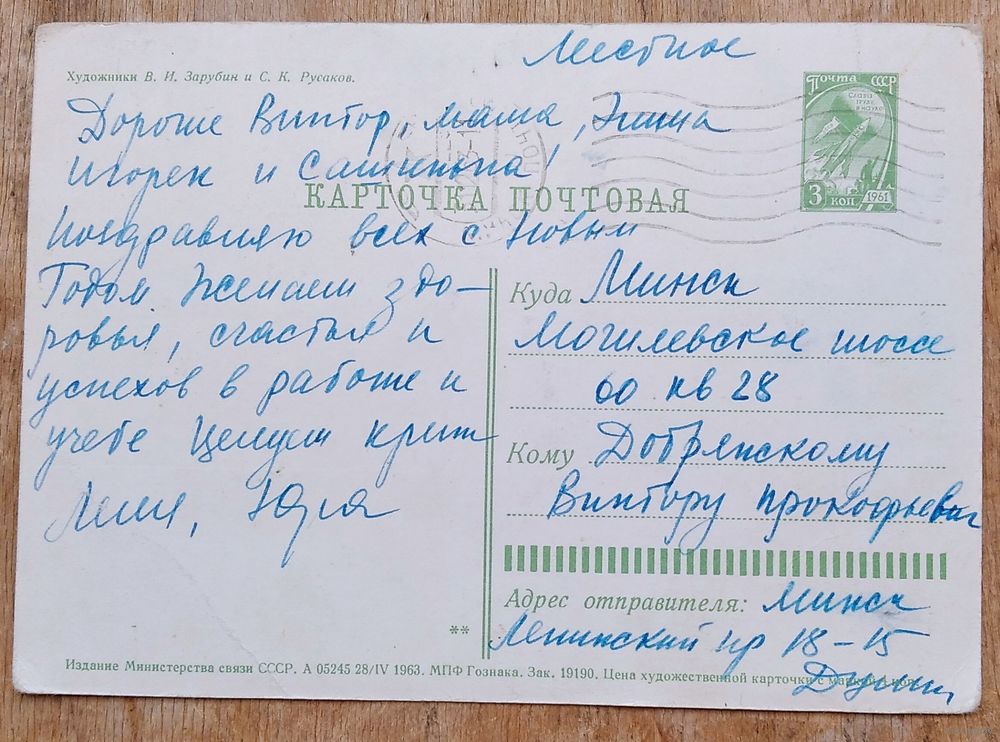 Местное
Художники В. И. Зарубин и С. К. Русаков.
Почта СССР
Слава
труду
и науке
3 коп
1961
Дорогие Виктор, мама,
Игорек и Сашенька!
КАРТОЧКА ПОЧТОВАЯ
Поздравляю всех с Новым
Годом Желаем здо-
ровья, счастья и
успехов в работе и
учебе Целуем крепк
Юля
Куда Минск
Могилевское шоссе
60 кв 28
Кому Добрянскому
Виктору Прокофьевич
Адрес отправителя: Минск
Ленинский пр 18-15
**
Издание Министерства связи СССР. А 05245 28/IV 1963. МПФ Гознака. Зак. 19190. Цена художественной карточки с маркой 4 коп.